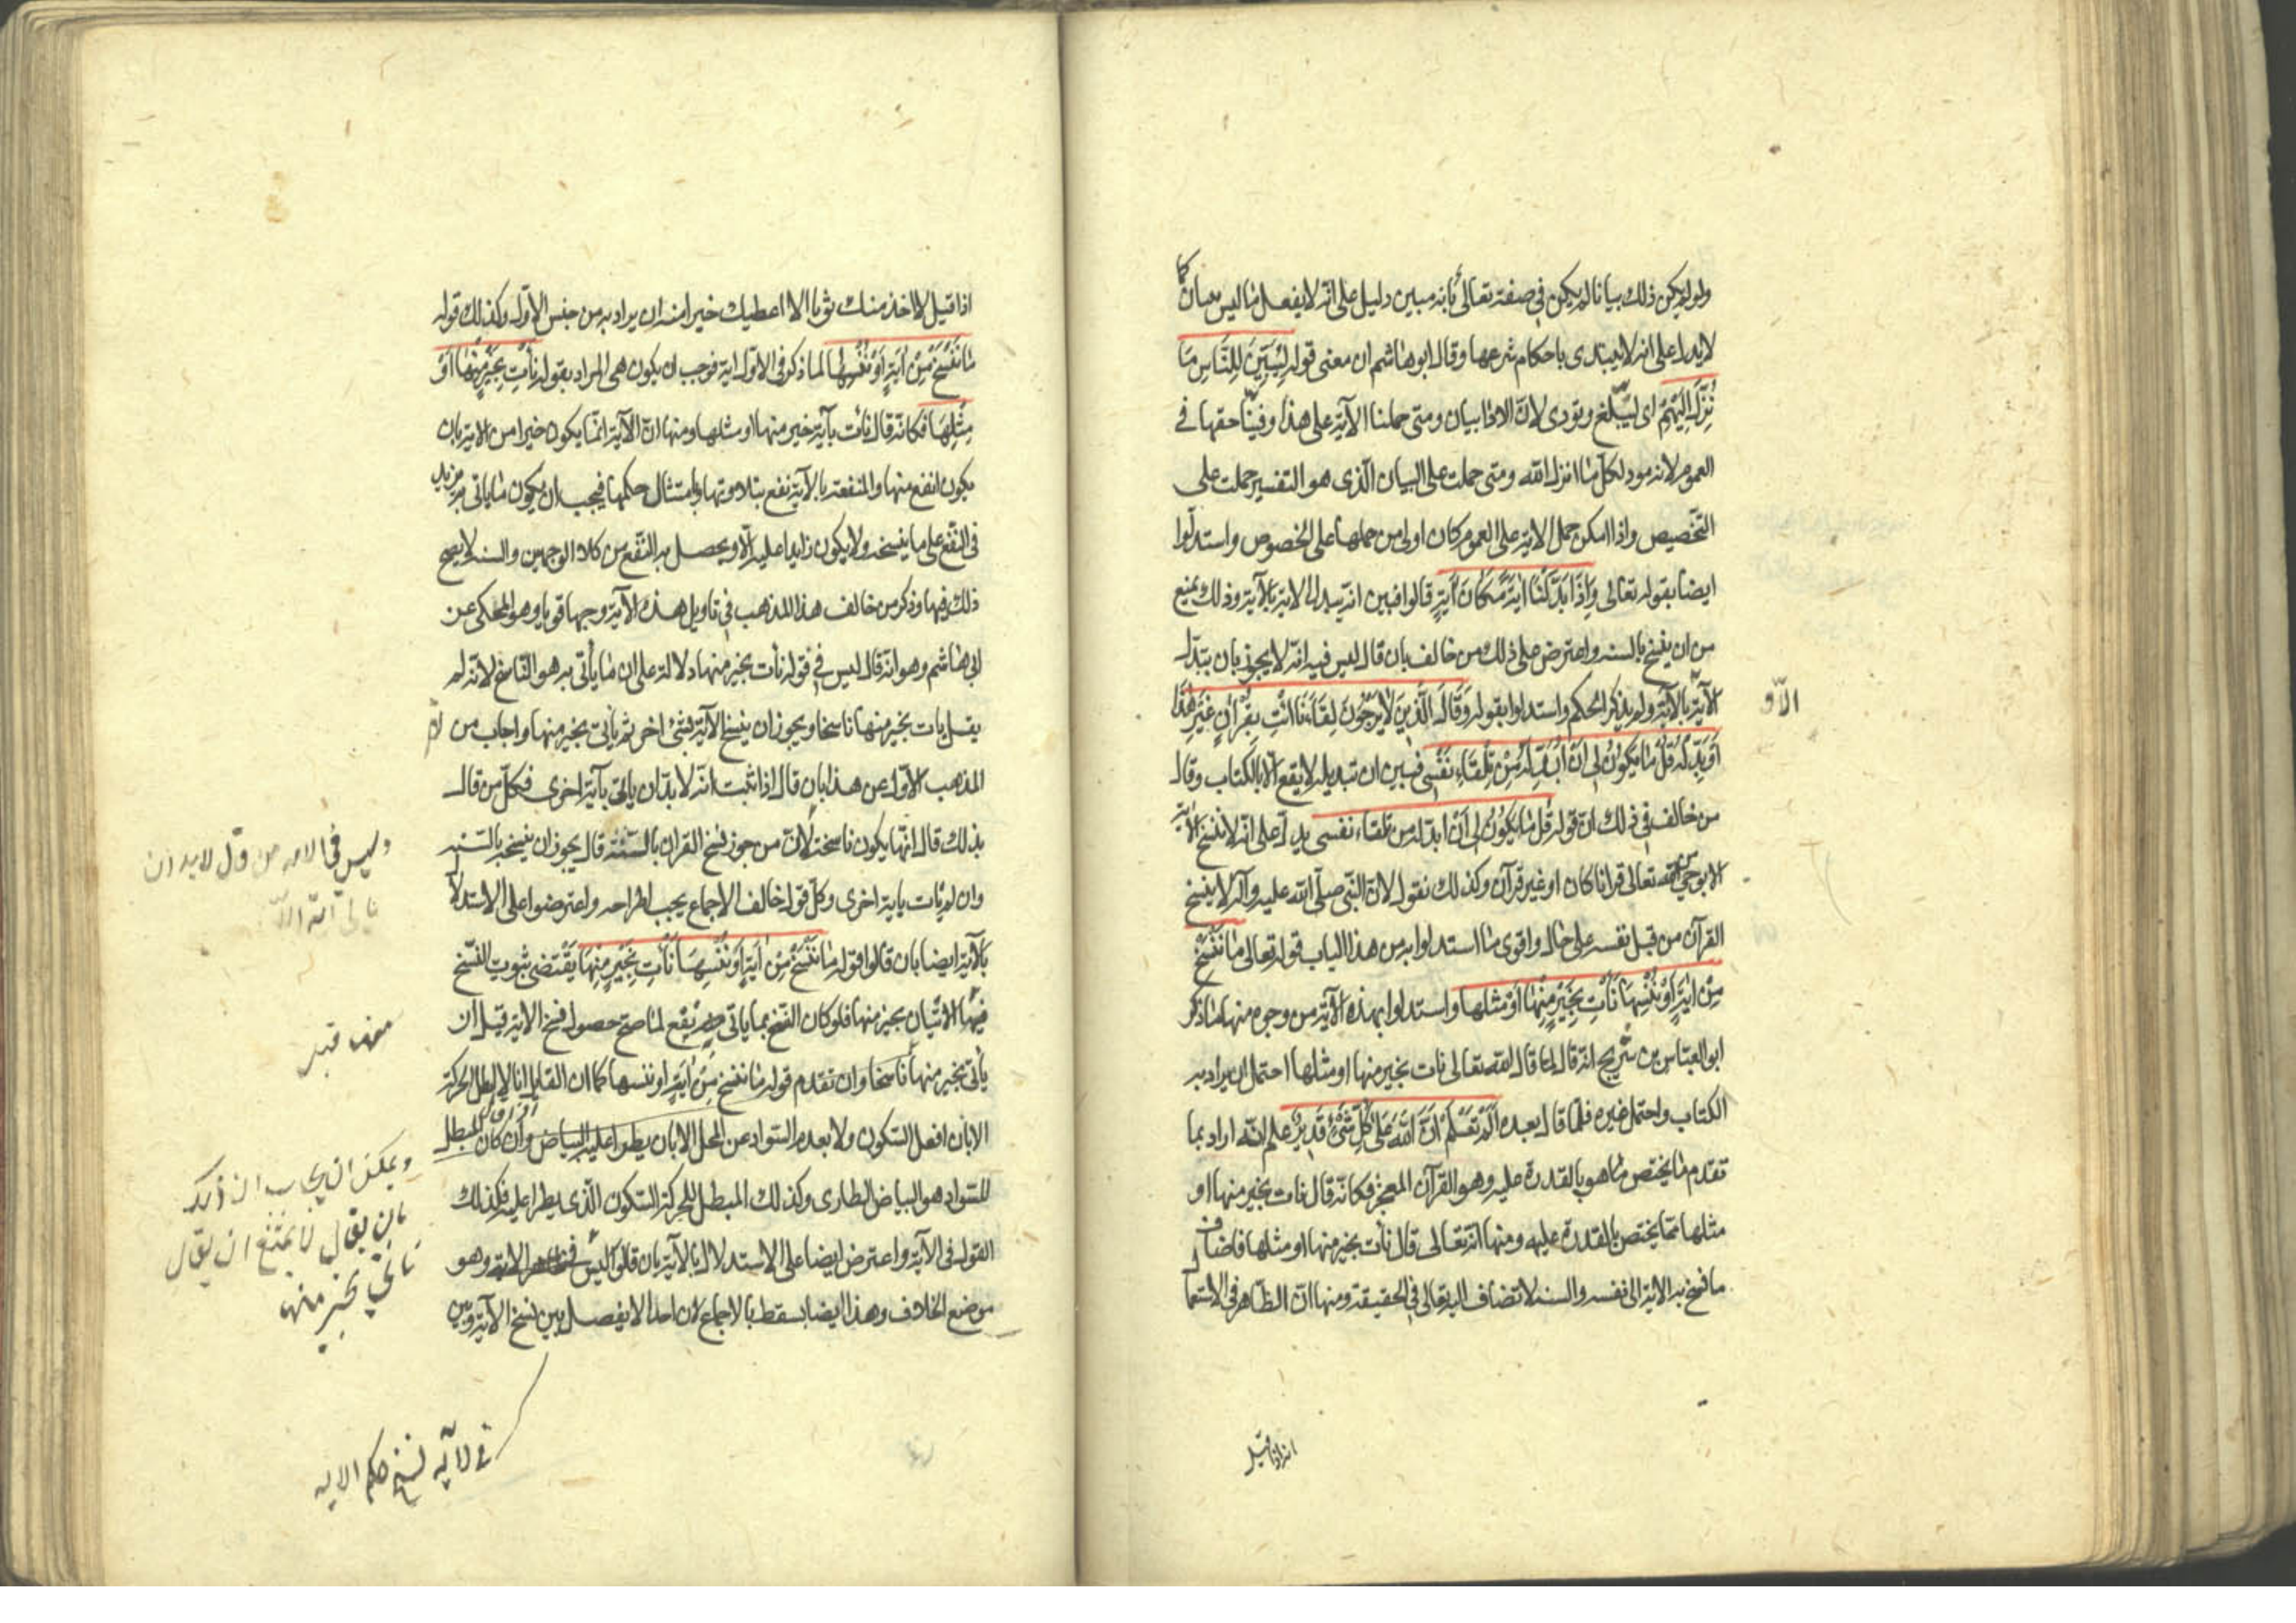 ولو لم يكن ذلك بيانا لم يكن في صفته تعالى بأنه مبين دليل على انه لا يفعل ما ليس ببيان كما
لا يدل على انه لا يبتدى باحكام شرعها وقال ابو هاشم ان معنى قوله لِتُبَيِّنَ لِلنَّاسِ مَا
نُزِّلَ اِلَيْهِمْ اى ليبلّغ ويؤدى لانّ الاداء بيان ومتى حملنا الآية على هذا وفينا حقها فى
العموم لانه مود لكل ما انزله الله ومتى حملت على البيان الّذى هو التفسير حملت على
التّخصيص واذا امكن حمل الاية على العموم كان اولى من حملها على الخصوص واستدلّوا
ايضا بقوله تعالى وَاِذَا بَدَّلْنَا ايَةً مَكَانَ ايَةٍ قالوا فبين انه يبدل الاية بالآية وذلك يمنع
من ان ينسخ بالسنه واعترض على ذلك من خالف بان قال ليس فيه انه لا يجوز بان يبدّل
الآية الّا بالآية ولم يذكر الحكم واستدلوا بقوله وَقَالَ الَّذِينَ لَا يَرْجُونَ لِقَاءَنَا ائْتِ بِقُرْانٍ غَيْرِ هذَا
الّا و
اَوْ بَدِّلْهُ قُلْ مَا يَكُونُ لِى اَنْ اُبَدِّلَهُ مِنْ تِلْقَاءِ نَفْسِى فبين ان تبديله لا يقع الّا بالكتاب وقال
من خالف فى ذلك انّ قوله قُل مَا يَكُونُ لِى اَنْ ابدّله من تلقاء نفسى يدلّ على انّه لا ينسخ الآية
الا بوحي من الله تعالى قرانا كان او غير قرآن وكذلك نقول لانّ النّبى صلّى الله عليه وآله لا ينسخ
القرآن من قبل نفسه على حال واقوى ما استدلوا به من هذا الباب قوله تعالى مَا نَنْسَخْ
مِنْ ايَةٍ اَوْ نُنْسِهَا نَأْتِ بِخَيْرٍ مِنْهَا اَوْ مثلها واستدلوا بهذه الآية من وجوه منها ما ذكر
ابو العبّاس بن شريح انّه قال لما قال الله تعالى نات بخير منها او مثلها احتمل ان يراد به
الكتاب واحتمل غيره فلمّا قال بعده اَلَمْ تَعْلَمْ اَنَّ اللّهَ عَلَى كُلِّ شَىْءٍ قَدِيرٌ علم انّه اراد بما
تقدم ما يختص ما هو بالقدرة عليه وهو القرآن المعجز فكانّه قال نات بخير منها او
مثلها ممّا يختص بالقدرة عليه ومنها انّه تعالى قال نأت بخير منها او مثلها فاضاف
ما نسخ به الآية الى نفسه والسنه لا تضاف اليه تعالى فى الحقيقة ومنها انّ الظّاهر فى الاستعمال
انه اذا قيل
اذا قيل لا اخذ منك ثوبا الا اعطيك خيرا منه ان يراد به من جنس الاوّل وكذلك قوله
مَا نَنْسَخْ مِنْ ايَةٍ اَوْ نُنْسِهَا لما ذكر فى الاوّل اية فوجب ان يكون هى المراد بقوله نأت بِخَيْرٍ مِنْهَا اَوْ
مِثْلِهَا فكانّه قال نأت بآية خير منها او مثلها ومنها انّ الآية انّما يكون خيرا من الاية بان
يكون انفع منها والمنفعة بالآية نفع بتلاوتها وامتثال حكمها فيجب ان يكون ما ياتى به يزيد
فى النّفع على ما ينسخه ولا يكون زايدا عليه الّا ويحصل به النّفع من كلا الوجهين والسنه لا يصح
ذلك فيها وذكر من خالف هذا المذهب فى تاويل هذه الآية وجها قويا وهو المحكى عن
ابى هاشم وهو انّه قال ليس فى قوله نأت بخير منها دلالة على ان ما يأتى به هو النّاسخ لانّه لم
يقل نات بخير منها ناسخا ويجوز ان ينسخ الآية بشئ اخر ثم يأتى بخير منها واجاب من
المذهب الاوّل عن هذا بان قال اذا ثبت انّه لا بدّ ان ياتى بآية اخرى فكلّ من قال
بذلك قال انّها يكون ناسخة لانّ من جوز نسخ القران بالسّنّة قال يجوز ان ينسخه بالسّنه
وان لم يات باية اخرى وكلّ قول خالف الاجماع يجب اطراحه واعترضوا على الاستدلال
بالآية ايضا بان قالوا قوله مَا نَنْسَخْ مِنْ ايَةٍ اَوْ نُنْسِهَا نَأْتِ بِخَيْرٍ مِنْهَا يَقْتضى ثبوت النّسخ
فيها الاتيان بخير منها فلو كان النّسخ بما ياتى به يقع لما صح حصول نسخ الاية قبل ان
يأتى بخير منها ناسخا وان تقدم قوله ما ننسخ مِنْ ايَةٍ او ننسها كما ان القايل انا لا ابطل الحركة
الا بان افعل السّكون ولا يعدم السّواد عن المحل الا بان يطرا عليه البياض وان كان المبطل
للسّواد هو البياض الطارى وكذلك المبطل للحركة السّكون الّذى يطرا عليه فكذلك
القول فى الآية واعترض ايضا على الاستدلال بالآية بان قالوا ليس فى ظاهر الاية وهو
موضع الخلاف وهذا ايضا يسقط بالاجماع لان احدا لا يفصل بين نسخ الآية وبين
وليس فى الايه من قال لا بد ان
ياتى آية الّا
منها قبل
ويمكن ان يجاب عن ذلك
بان يقال لا يمتنع ان يقال
نأتي بخير منها
فى لآيه نسخ حكم الايه